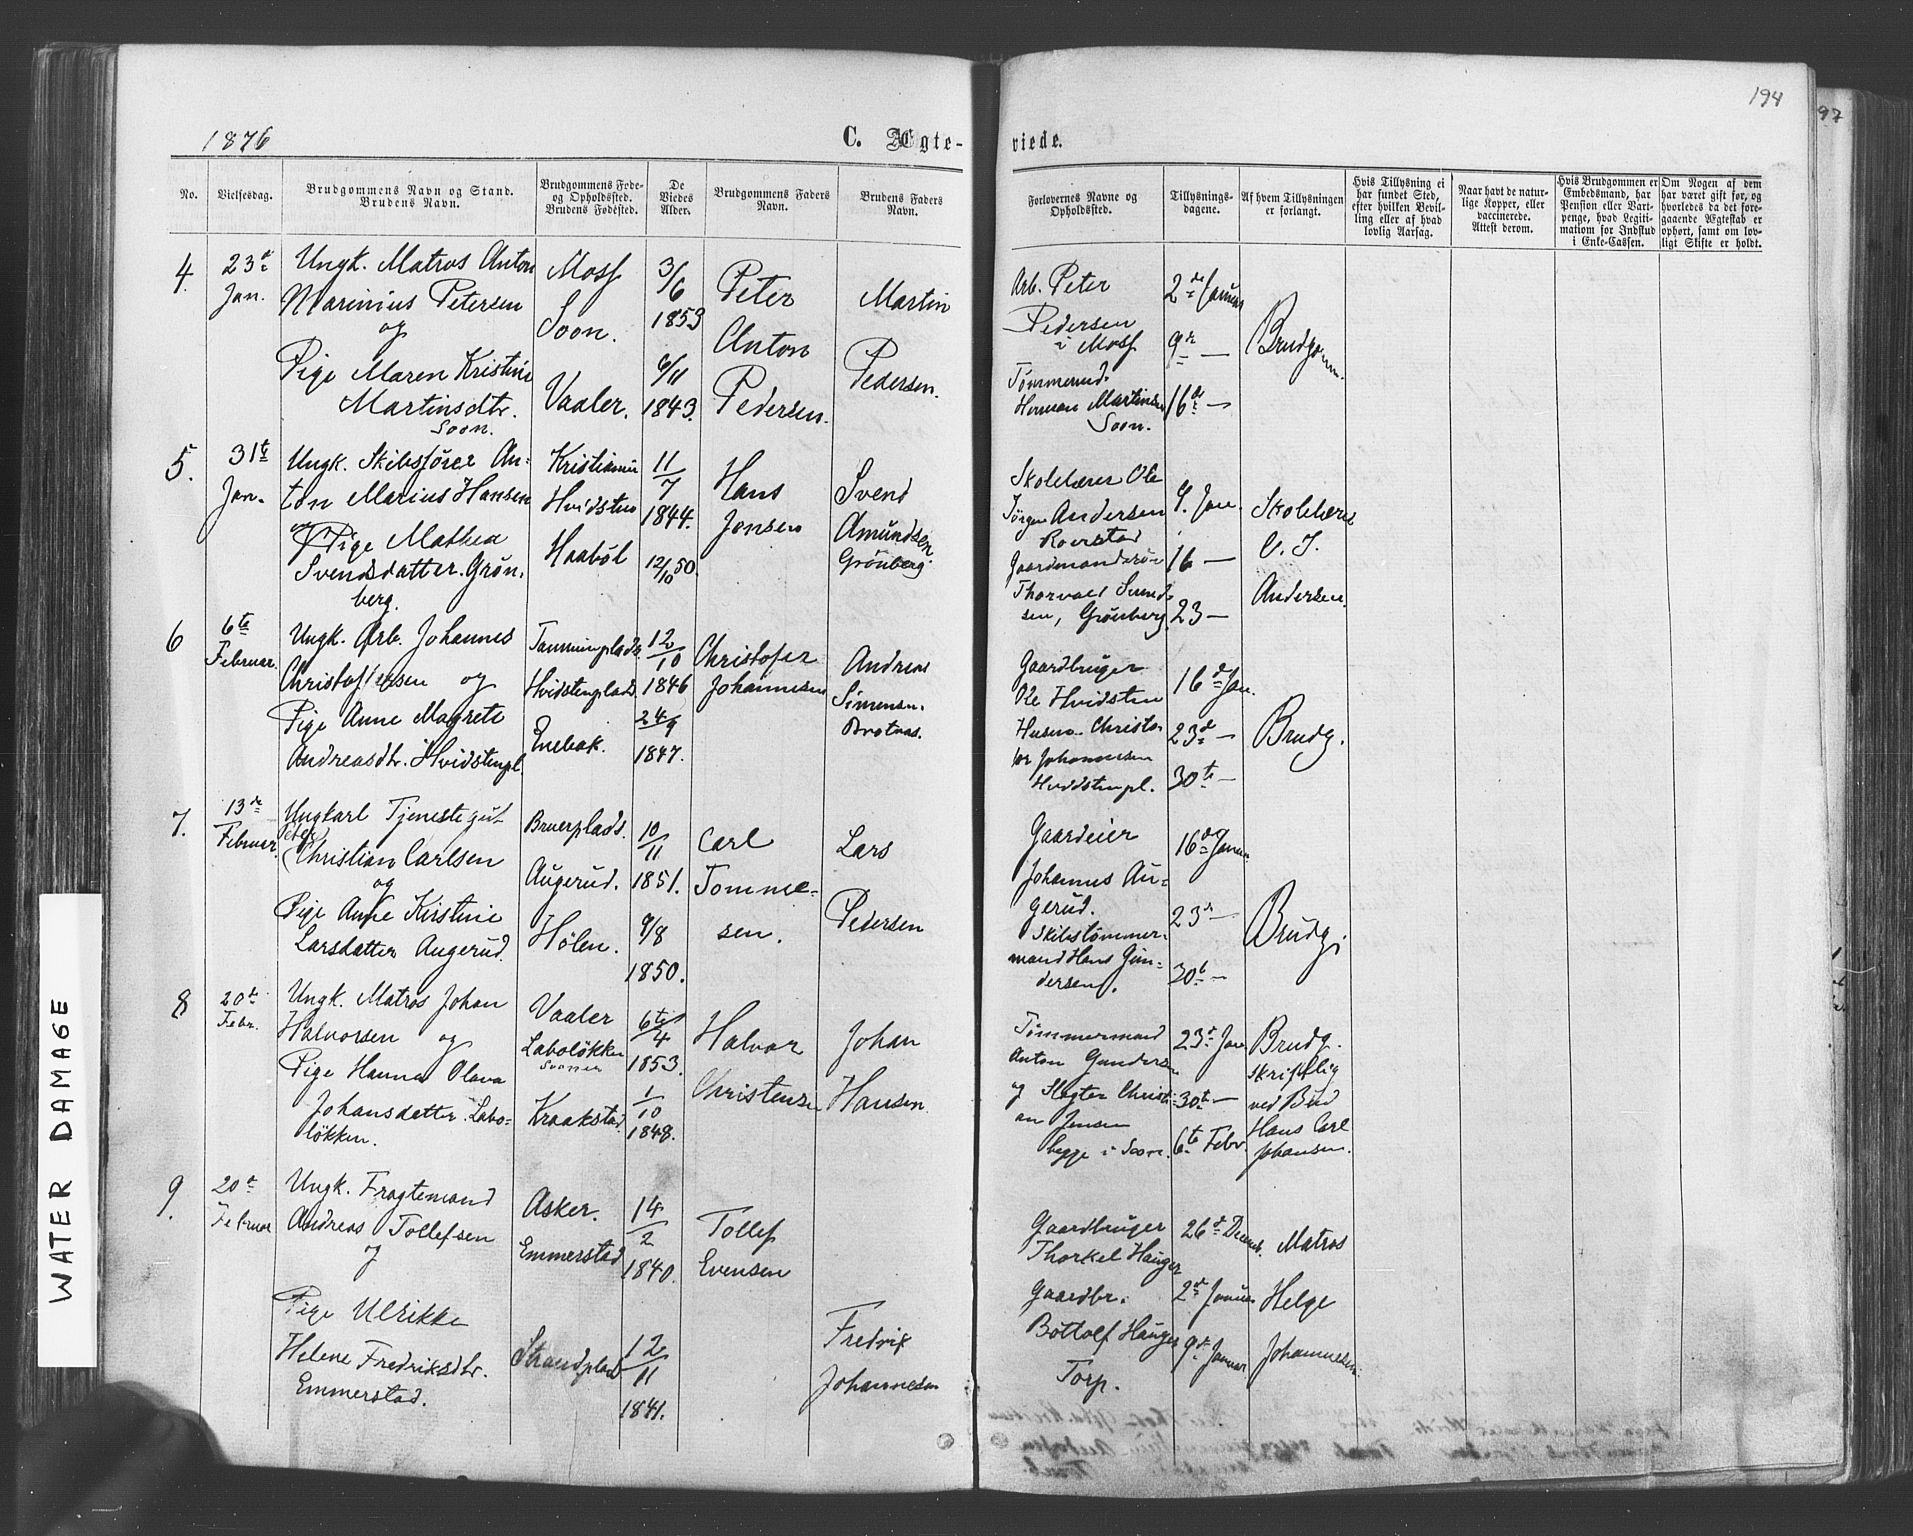 194
97
1876
C. Ægte-
viede.
No.
Vielsesdag.
Brudgommens Navn og Stand.
Brudens Navn.
Brudgommens Føde-
og Opholdssted.
Brudens Fødested.
De
Viedes
Alder.
Brudgommens Faders
Navn.
Brudens Faders
Navn.
Forlovernes Navne og
Opholdssted.
Tillysnings-
dagene.
Af hvem Tillysningen
er forlangt.
Hvis Tillysning ei
har fundet Sted,
efter hvilken Bevil-
ling eller af hvad
lovlig Aarsag.
Naar havt de natur-
lige Kopper, eller
vaccinerede.
Attest derom.
Hvis Brudgommen er
Embedsmand, har
Pension eller Vart-
penge, hvad Legiti-
mation for Indskud
i Enke-Cassen.
Om Nogen af dem
har været gift før, og
hvorledes da det fore-
gaaende Ægteskab er
ophørt, samt om lov-
ligt Skifte er holdt.
4.
23de
Jan.
Ungk. Matros Anton
Marinius Petersen
og
Pige Maren Kristine
Martinsdtr.
Soon.
Moss
Soon.
Vaaler.
3/6
1853
6/11
1843.
Peter
Anton
Pedersen.
Martin
Pedersen.
Arb. Peter
Pedersen
i Moss
Tømmermd.
Herman Martinsen
Soon.
2de Januar
9de —
16de —
Brudgom.
5.
31te
Jan.
Ungk. Skibsfører An-
ton Marius Hansen
og Pige Mathea
Svendsdatter Grøn-
berg.
Kristiania
Hvidsten
Haabøl
11/7
1844.
12/10 50.
Hans
Jonsen
Svend
Amundsen
Grønberg.
Skolelærer Ole
Jørgen Andersen
Roerstad
Gaardmandssøn
Thorvald Svend-
sen, Grønberg
9. Jan.
16 —
23 —
Skolelærer
O. J.
Andersen.
6
6te
Februar.
Ungk. Arb. Johannes
Christoffersen og
Pige Anne Magrete
Andreasdtr. Hvidstenpl.
Hvidstenplads.
Enebak.
12/10
1846
24/9
1847.
Christofer
Johannesen
Andreas
Simensen
Gaardbruger
Ole Hvidsten
Husm. Christo-
fer Johannesen
Hvidstenpl.
16de Jan.
23de —
30te —
Brudg.
7.
13de
Februar.
Ungkarl Tjenestegut
Peter
Christian Carlsen
og
Pige Anne Kirstine
Larsdatter Augerud.
Bruerplads.
Augerud.
Hølen.
10/11
1851.
9/8
1850.
Carl
Tomme-
sen.
Lars
Pedersen
Gaardeier
Johannes Au-
gerud.
Skibstømmer-
mand Hans Gun-
dersen.
16de Januar
23de —
30te —
Brudg.
8
20de
Febr.
Ungk. Matros Johan
Halvorsen og
Pige Hanna Olava
Johansdatter Labo-
løkken.
Vaaler
Laboløkken
Soonen
Kraakstad
6te/4
1853.
1/10
1848.
Halvor
Christensen
Johan
Hansen
Tømmermand
Anton Gundersen
og Slagter Christi-
an Jensen
begge i Soon.
23de Jan.
30te —
6te Febr.
Brudg.
skriftlig
ved Bud
Hans Carl
Johansen.
9.
20de
Februar
Ungk. Fragtemand
Andreas Tollefsen
og
Pige Ulrikke
Helene Fredriksdtr.
Emmerstad.
Asker.
Emmerstad
Strandplads
14/2
1840.
12/11
1841.
Tollef
Evensen
Fredrik
Johannesen
Gaardbruger
Thorkel Hauger
Gaardbr.
Bottolf Hauger
Torp.
26de Decemb.
2de Januar
9de Januar
Matros
Helge
Johannesen.
WATER DAMAGE